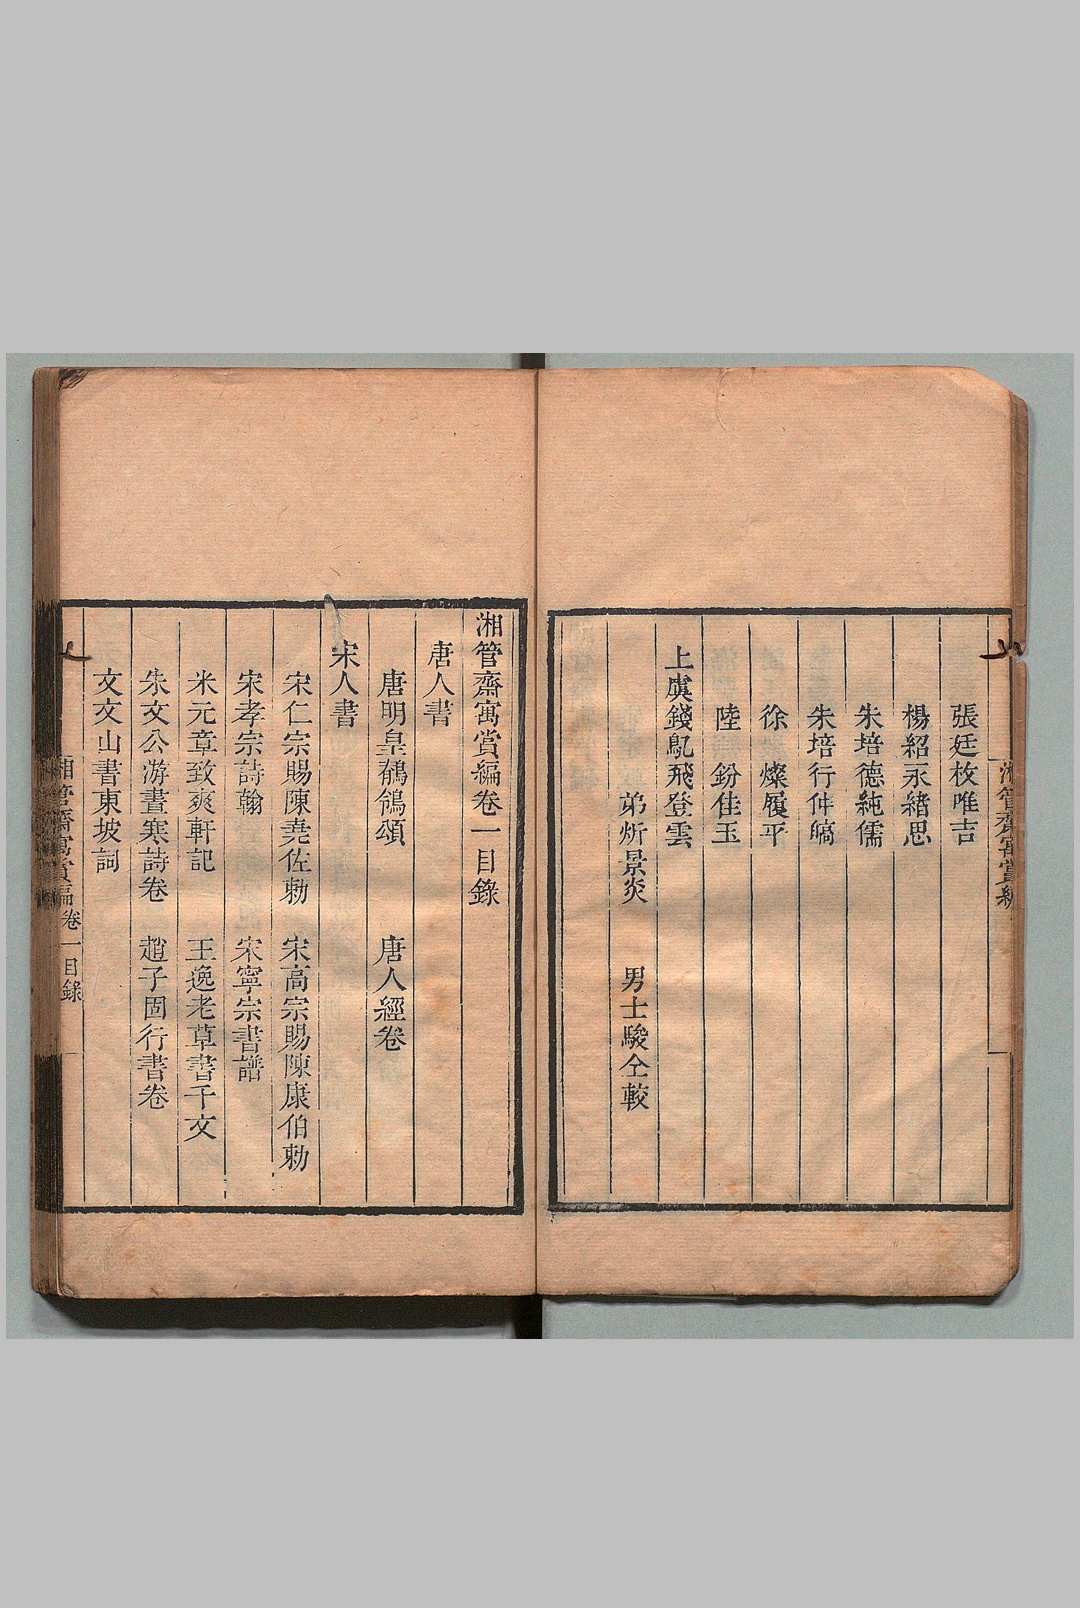 張廷枚唯吉
楊紹永緒思
朱培德純儒
朱培行仲皜
徐燦履平
陸鈖佳玉
上虞錢鳧飛登雲
弟炘景炎　男士駿仝較
湘管齋寓賞編卷一目錄
唐人書
唐明皇鶺鴒頌　唐人經卷
宋人書
宋仁宗賜陳堯佐勅　宋高宗賜陳康伯勅
宋孝宗詩翰　宋寧宗書譜
米元章致爽軒記　王逸老草書千文
朱文公游晝寒詩卷　趙子固行書卷
文文山書東坡詞
湘管齋寓賞編卷一目錄